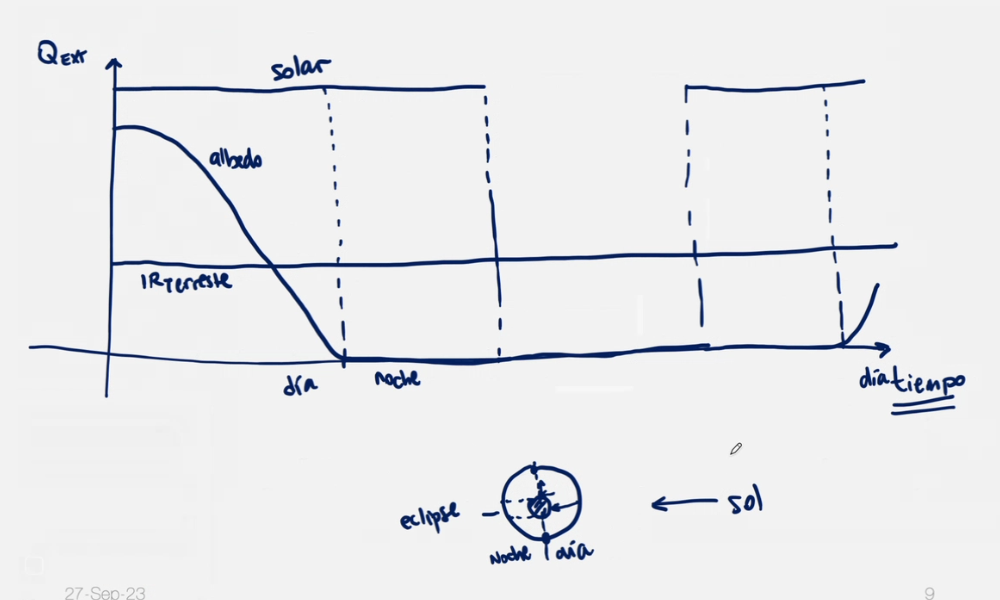 QEXT
solar
albedo
IRTerreste
día
noche
día
tiempo
eclipse
sol
Noche
día
27-Sep-23
9